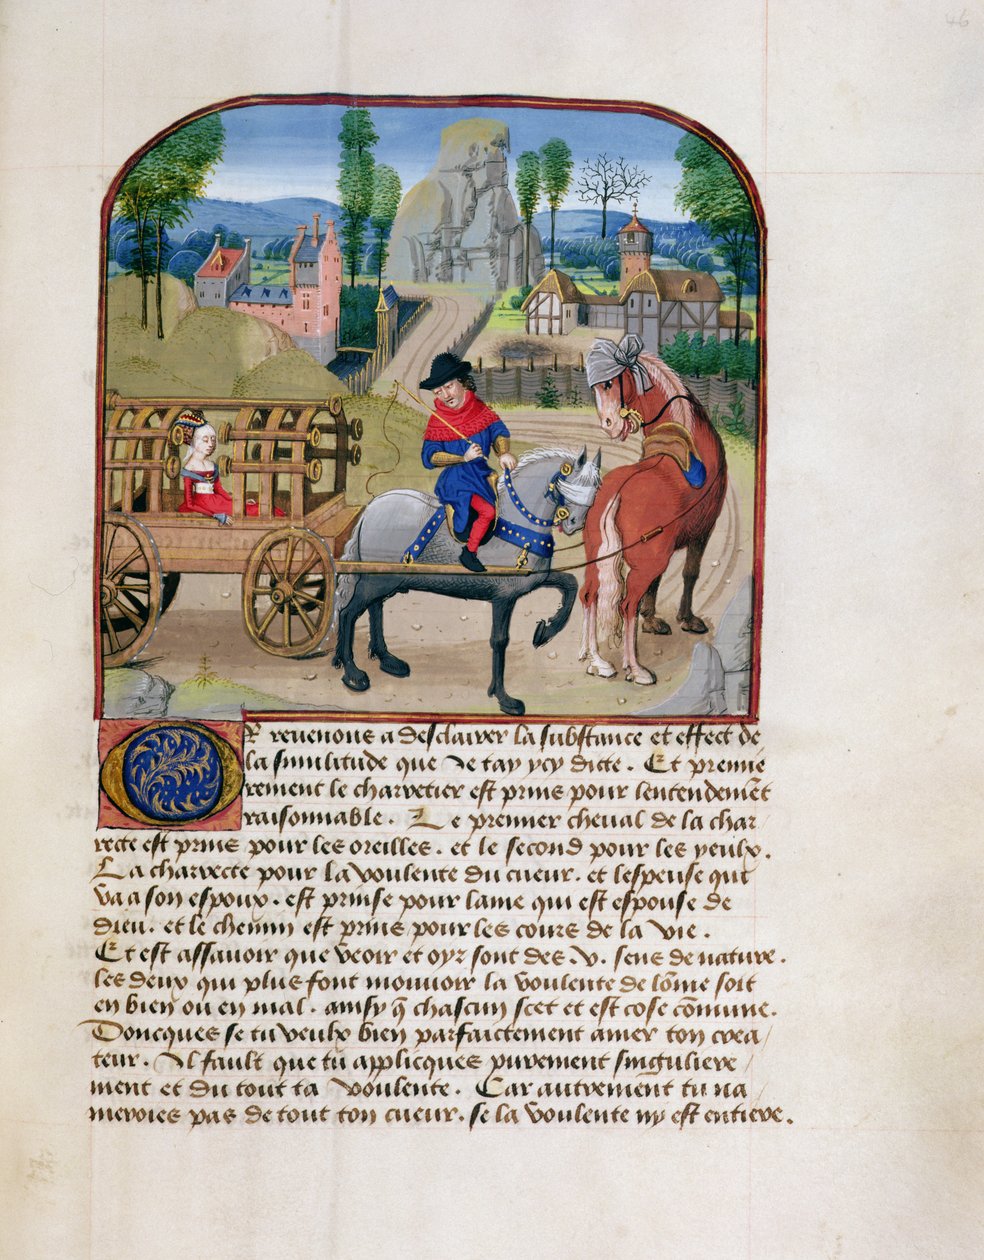 46
Or revenons a desclairer la substance et effect de
la similitude que Je tay ycy dicte . Et premie
rement le charretier est prins pour lentendemẽt
raisonnable . Le premier cheval de la char
recte est prins pour les oreilles . et le second pour les yeulx .
La charrecte pour la voulente du cueur . et lespeuse qui
va a son espoux . est prinse pour lame qui est espouse de
dieu . et le chemin est prins pour les cours de la vie .
Et est assavoir que veoir et oyr sont des . v . sens de nature .
les deux qui plus font mouvoir la voulente de lõme soit
en bien ou en mal . ainsy q̃ chascun scet et est cose cõmune .
Doncques se tu veulx bien parfaictement amer ton crea
teur . Il fault que tu applicques purement singuliere
ment et du tout ta voulente . Car autrement tu na
meroies pas de tout ton cueur . se la voulente ny est entiere .